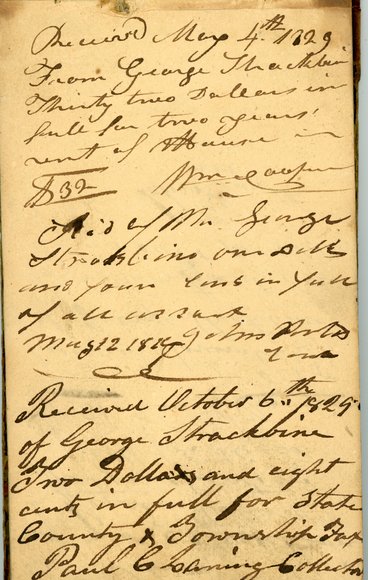 Received May 4th 1829
From George Strackbin
Thirty two Dollars in
full for two years'
rent of House in
$32 Wm Cooper
Rec'd of Mr George
Strackbine one Doll
and four Cents in full
of all
1829 John
Received October 6th 1829
of George Strackbine
Two Dollars and eight
cents in full for State
County & Township Tax
Paul C Laning Collector